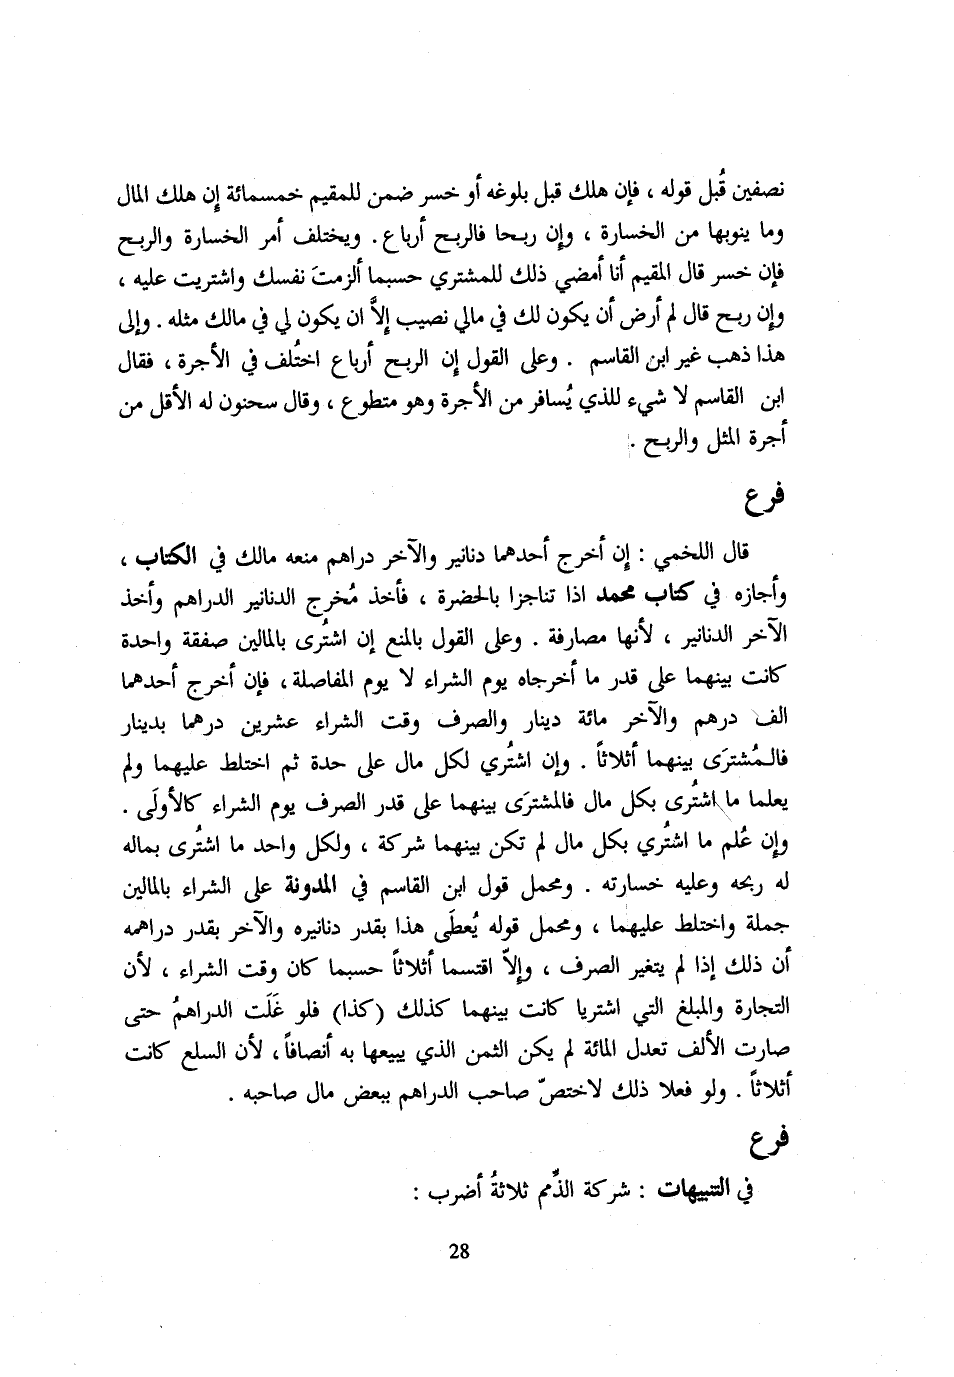 نصفين قُبل قوله ، فإن هلك قبل بلوغه أو خسر ضمن للمقيم خمسمائة إن هلك المال
وما ينوبها من الخسارة ، وإن ربحا فالربح أرباع . ويختلف أمر الخسارة والربح
فإن خسر قال المقيم أنا أمضي ذلك للمشتري حسبما ألزمتَ نفسك واشتريت عليه ،
وإن ربح قال لم أرض أن يكون لك في مالي نصيب إلاَّ ان يكون لي في مالك مثله . وإلى
هذا ذهب غير ابن القاسم . وعلى القول إن الربح أرباع اختُلف في الأجرة ، فقال
ابن القاسم لا شيء للذي يُسافر من الأجرة وهو متطوع ، وقال سحنون له الأقل من
أجرة المثل والربح .
فرع
قال اللخمي : إن أخرج أحدهما دنانير والآخر دراهم منعه مالك في الكتاب ،
وأجازه في كتاب محمد اذا تناجزا بالحضرة ، فأخذ مُخرج الدنانير الدراهم وأخذ
الآخر الدنانير ، لأنها مصارفة . وعلى القول بالمنع إن اشتُرى بالمالين صفقة واحدة
كانت بينهما على قدر ما أخرجاه يوم الشراء لا يوم المفاصلة ، فإن أخرج أحدهما
الف درهم والآخر مائة دينار والصرف وقت الشراء عشرين درهما بدينار
فالمُشترَى بينهما أثلاثاً . وإن اشتُري لكل مال على حدة ثم اختلط عليهما ولم
يعلما ما اشتُرى بكل مال فالمشترَى بينهما على قدر الصرف يوم الشراء كالأولَى .
وإن عُلم ما اشتُري بكل مال لم تكن بينهما شركة ، ولكل واحد ما اشتُرى بماله
له ربحه وعليه خسارته . ومحمل قول ابن القاسم في المدونة على الشراء بالمالين
جملة واختلط عليهما ، ومحمل قوله يُعطَى هذا بقدر دنانيره والآخر بقدر دراهمه
أن ذلك إذا لم يتغير الصرف ، وإلاّ اقتسما أثلاثاً حسبما كان وقت الشراء ، لأن
التجارة والمبلغ التي اشتريا كانت بينهما كذلك (كذا) فلو غَلَت الدراهمُ حتى
صارت الألف تعدل المائة لم يكن الثمن الذي يبيعها به أنصافاً ، لأن السلع كانت
أثلاثاً . ولو فعلا ذلك لاختصّ صاحب الدراهم ببعض مال صاحبه .
فرع
في التنبيهات : شركة الذِّمم ثلاثةُ أضرب :
28